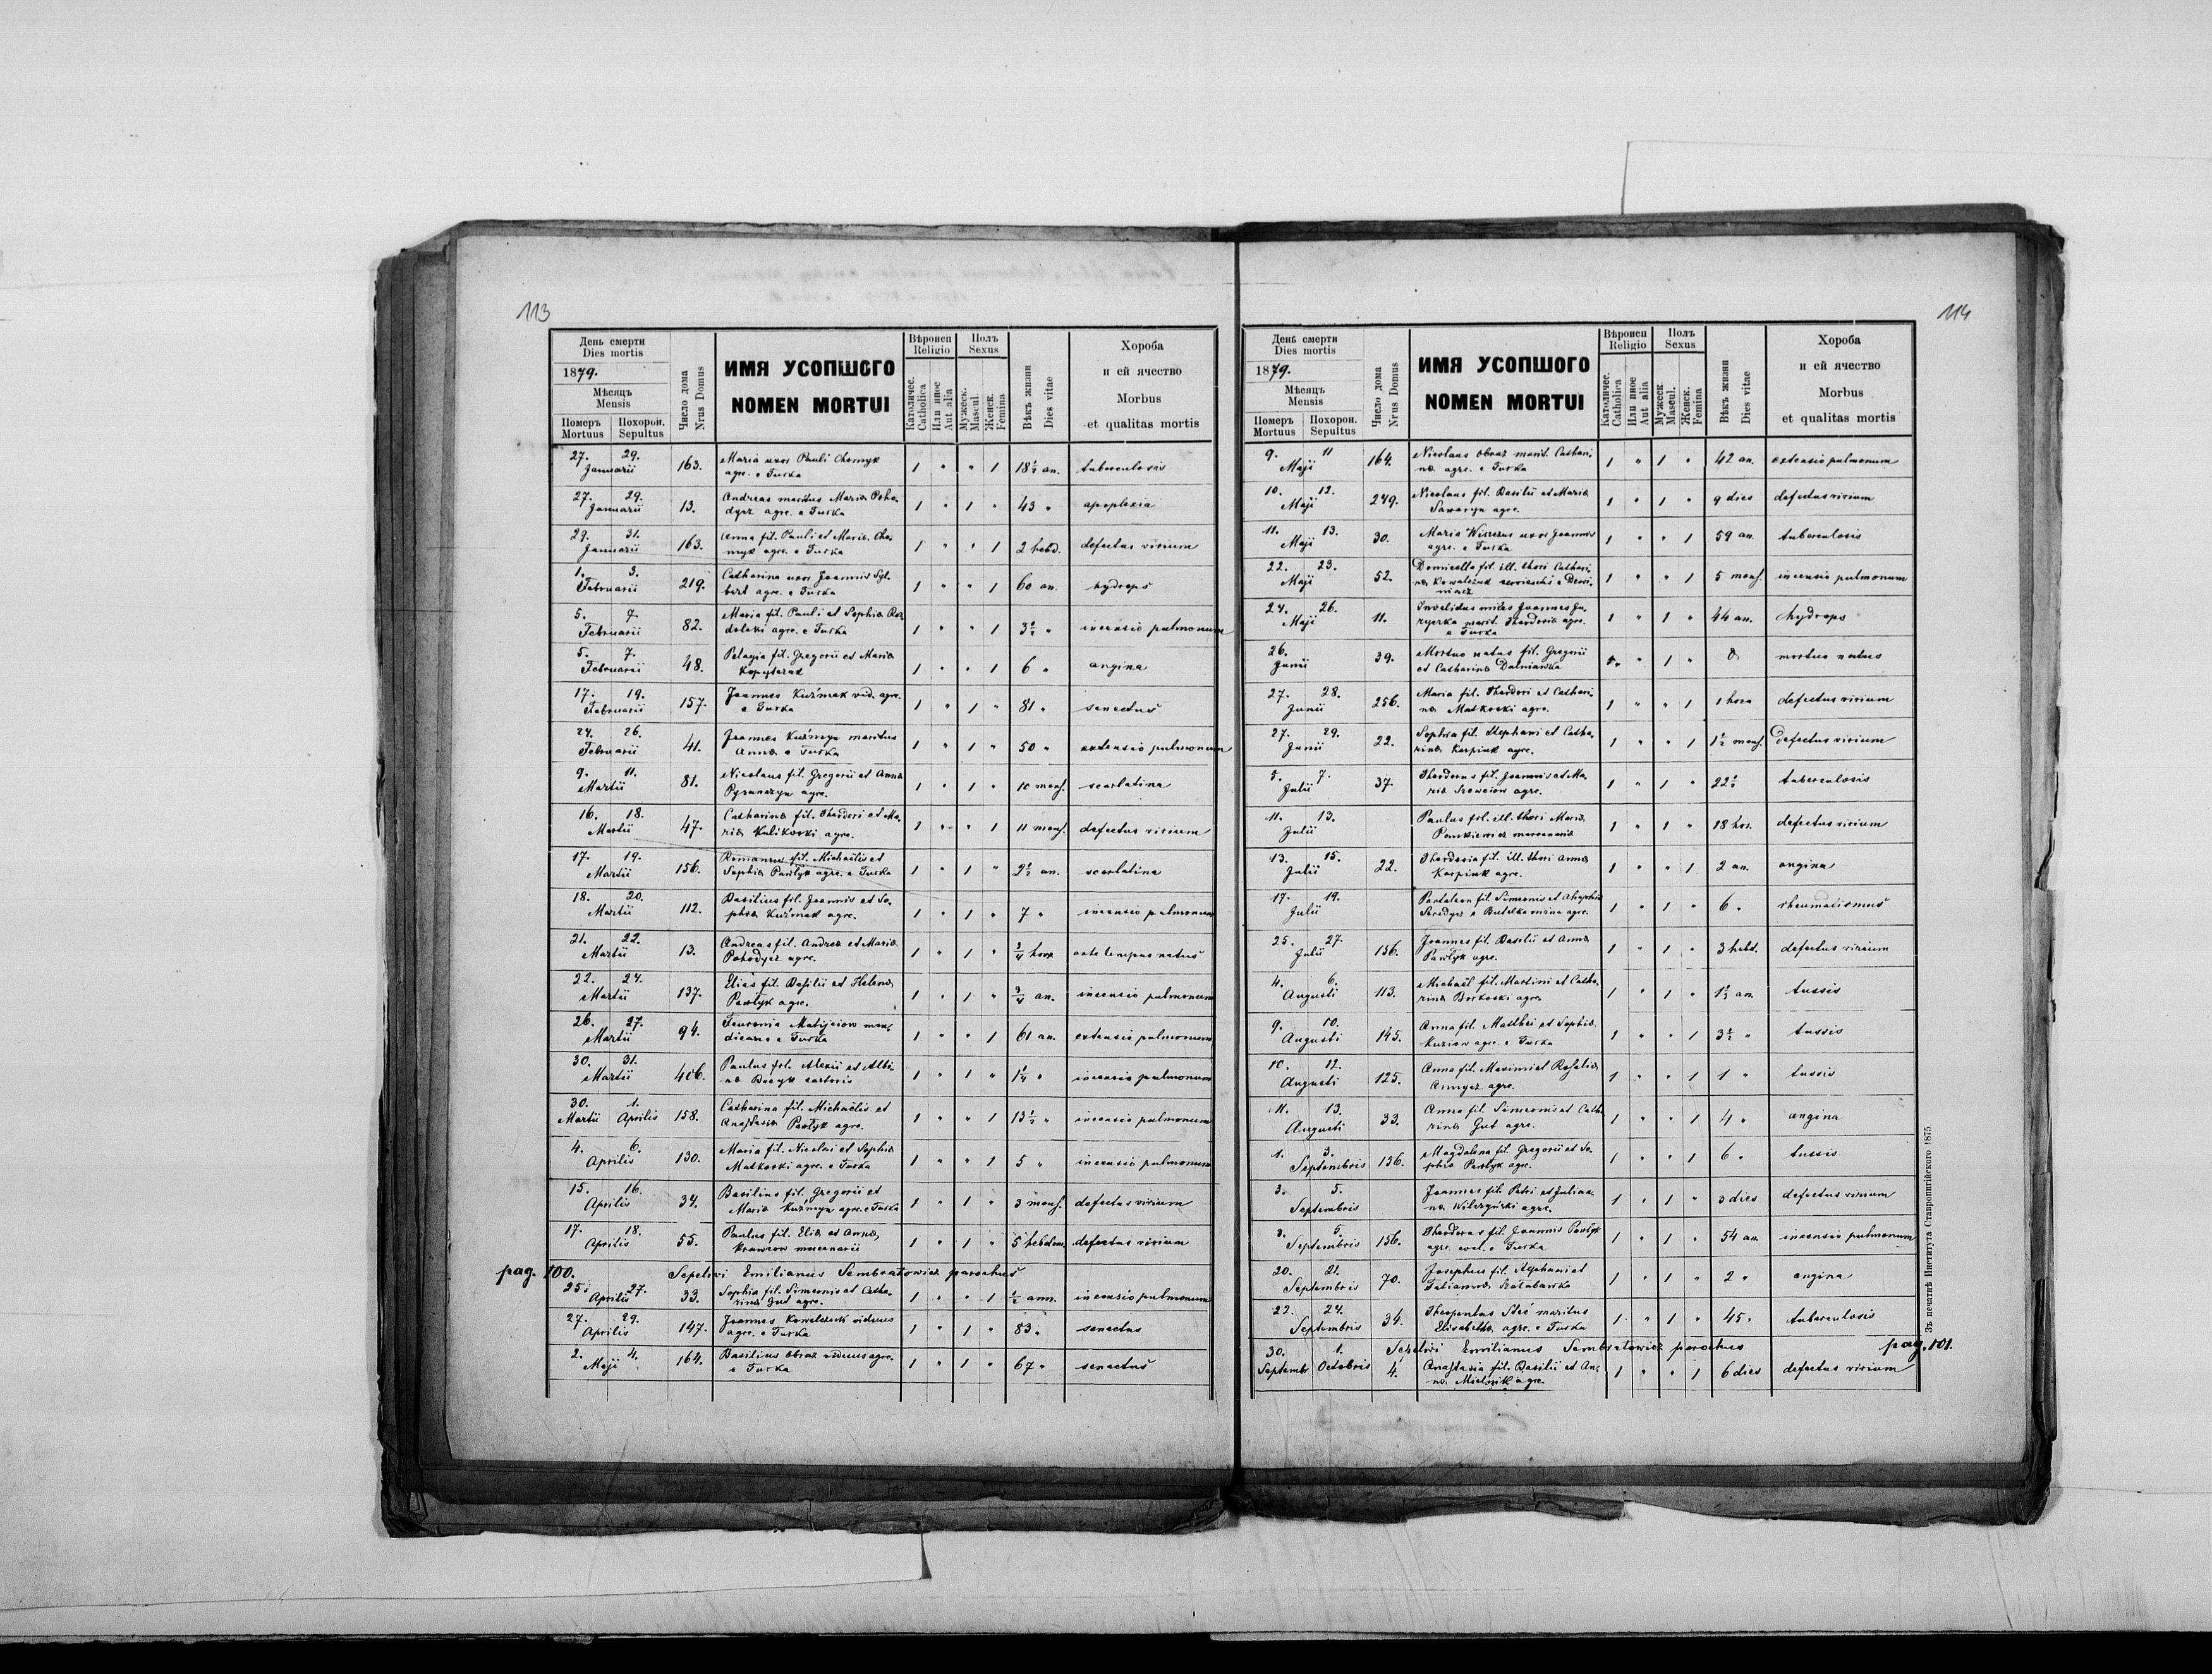 113
День смерти
Dies mortis
1879.
Мѣсяцъ
Mensis
Померъ Mortuus
Похорон. Sepultus
Число дома
Nrus Domus
ИМЯ УСОПШОГО
NOMEN MORTUI
Вѣроисп
Religio
Католичес.
Catholica
Или иное
Aut alia
Полъ
Sexus
Мужеск.
Mascul.
Женск.
Femina
Вѣкъ жизни
Dies vitae
Хороба
и ей ячество
Morbus
et qualitas mortis
27. 29. Januarii 163. Maria uxor Pauli Chomyk
agr. e Turka 1 " " 1 18½ an. tuberculosis
27. 29. Januarii 13. Andreas maritus Maria Poho-
dycz agr. e Turka 1 " 1 " 43 " apoplexia
29. 31. Januarii 163. Anna fil. Pauli et Maria Cho-
myk agr. e Turka 1 " " 1 2 hebd. defectus virium
1. 3. Februarii 219. Catharina uxor Joannis
agr. e Turka 1 " " 1 60 an. hydrops
5. 7. Februarii 82. Maria fil. Pauli et Sophia
agr. e Turka 1 " " 1 3½ " incensio pulmonum
5. 7. Februarii 48. Pelagia fil. Gregorii et Maria
1 " " 1 6 " angina
17. 19. Februarii 157. Joannes Kuźmak vid. agr.
e Turka 1 " 1 " 81 " senectus
24. 26. Februarii 41. Joannes Kuźmyn maritus
Anna e Turka 1 " 1 " 50 " extensio pulmonum
9. 11. Martii 81. Nicolaus fil. Gregorii et Anna
agr. 1 " 1 " 10 mens. scarlatina
16. 18. Martii 47. Catharina fil. Theodori et Ma-
ria Kulikoski agr. 1 " " 1 11 mens. defectus virium
17. 19. Martii 156. Romanus fil. Michaelis et
Sophia Pawlyk agr. e Turka 1 " 1 " 2½ an. scarlatina
18. 20. Martii 112. Basilius fil. Joannis et So-
phia Kuźmak agr. 1 " 1 " 7 " incensio pulmonum
21. 22. Martii 13. Andreas fil. Andrea et Maria
Pohodycz agr. 1 " 1 " ¾ hora ante tempus natus
22. 24. Martii 137. Elias fil. Basilii et Helena
Pawlyk agr. 1 " 1 " ¾ an. incensio pulmonum
26. 27. Martii 94. Feuronia Matijciow men-
dicans e Turka 1 " " 1 61 an. extensio pulmonum
30. 31. Martii 406. Paulus fil. Alexii et Albi-
na sartoris 1 " 1 " 1¼ " incensio pulmonum
30. Martii 1. Aprilis 158. Catharina fil. Michaelis et
Anastasia Pawlyk agr. 1 " " 1 13½ " incensio pulmonum
4. 6. Aprilis 130. Maria fil. Nicolai et Sophia
Matkoski agr. e Turka 1 " " 1 5 " incensio pulmonum
15. 16. Aprilis 34. Basilius fil. Gregorii et
Maria Kuźmyn agr. e Turka 1 " 1 " 3 mens. defectus virium
17. 18. Aprilis 55. Paulus fil. Elia et Anna
Krawców mercenarii 1 " 1 " 5 hebdom. defectus virium
pag. 100. Sepelivi Emilianus Sembratowicz parochus
25. 27. Aprilis 33. Sophia fil. Simeonis et Catha-
rina Gut agr. 1 " " 1 ½ ann. incensio pulmonum
27. 29. Aprilis 147. Joannes Kowalczuk viduus
agr. e Turka 1 " 1 " 83 " senectus
2. 4. Maji 164. Basilius Obraz viduus agr.
e Turka 1 " 1 " 67 " senectus
114
День смерти
Dies mortis
1879.
Мѣсяцъ
Mensis
Померъ Mortuus
Похорон. Sepultus
Число дома
Nrus Domus
ИМЯ УСОПШОГО
NOMEN MORTUI
Вѣроисп
Religio
Католичес.
Catholica
Или иное
Aut alia
Полъ
Sexus
Мужеск.
Mascul.
Женск.
Femina
Вѣкъ жизни
Dies vitae
Хороба
и ей ячество
Morbus
et qualitas mortis
9. 11 Maji 164. Nicolaus Obraz marit. Cathari-
na agr. e Turka 1 " 1 " 42 an. extensio pulmonum
10. 12. Maji 249. Nicolaus fil. Basilii et Maria
Sawaryn agr. 1 " 1 " 9 dies defectus virium
11. 13. Maji 30. Maria uxor Joannis
agr. e Turka 1 " " 1 59 an. tuberculosis
22. 23. Maji 52. Domicella fil. ill. thori Cathari-
na Kowalczuk 1 " " 1 5 mens. incensio pulmonum
24. 26. Maji 11. Invalidus miles Joannes
marit. Theodosia agr.
e Turka 1 " 1 " 44 an. hydrops
26. Junii 39. Mortuo natus fil. Gregorii
et Catharina " 1 " 0 mortuo natus
27. 28. Junii 256. Maria fil. Theodori et Cathari-
na Matkoski agr. 1 " " 1 1 hora defectus virium
27. 29. Junii 22. Sophia fil. Stephani et Catha-
rina Karpiuk agr. 1 " " 1 1½ mens. defectus virium
5. 7. Julii 37. Theodorus fil. Joannis et Ma-
ria Szewciow agr. 1 " 1 " 22½ tuberculosis
11. 13. Julii Paulus fil. ill. thori Maria
mercenaria 1 " 1 " 18 hor. defectus virium
13. 15. Julii 22. Theodosia fil. ill. thori Anna
Karpiuk agr. 1 " " 1 2 an. angina
17. 19. Julii Pantaleon fil. Simeonis et
agr. 1 " 1 " 6 " rheumatismus
25. 27. Julii 156. Joannes fil. Basilii et Anna
Pawlyk agr. 1 " 1 " 3 hebd. defectus virium
4. 6. Augusti 113. Michaël fil. Martini et Catha-
rina Borkoski agr. 1 " 1 " 1½ an. tussis
9. 10. Augusti 145. Anna fil. Matthei et Sophia
Kuziow agr. e Turka 1 " " 1 3½ " tussis
10. 12. Augusti 125. Anna fil. Maximi et Rosalia
agr. 1 " " 1 1 " tussis
11. 13. Augusti 33. Anna fil. Simeonis et Catha-
rina Gut agr. 1 " " 1 4 " angina
1. 3. Septembris 156. Magdalena fil. Gregorii et So-
phia Pawlyk agr. 1 " " 1 6 " tussis
3. 5. Septembris Joannes fil. Petri et Julian-
na Wilczyński agr. 1 " 1 " 3 dies defectus virium
3. 5. Septembris 156. Theodorus fil. Joannis Pawlyk
agr. e Turka 1 " 1 " 54 an. incensio pulmonum
20. 21. Septembris 70. Josephus fil. Alphani et
Tatianna 1 " 1 " 2 " angina
22. 24. Septembris 34. Theopentus Steć maritus
Elisabetha agr. e Turka 1 " 1 " 45 " tuberculosis
Sepelivi Emilianus Sembratowicz parochus pag. 101.
30. Septembr 1. Octobris 4. Anastasia fil. Basilii et An-
na Mielnik agr. 1 " " 1 6 dies defectus virium
Зъ печатнѣ Института Ставропигійского 1875